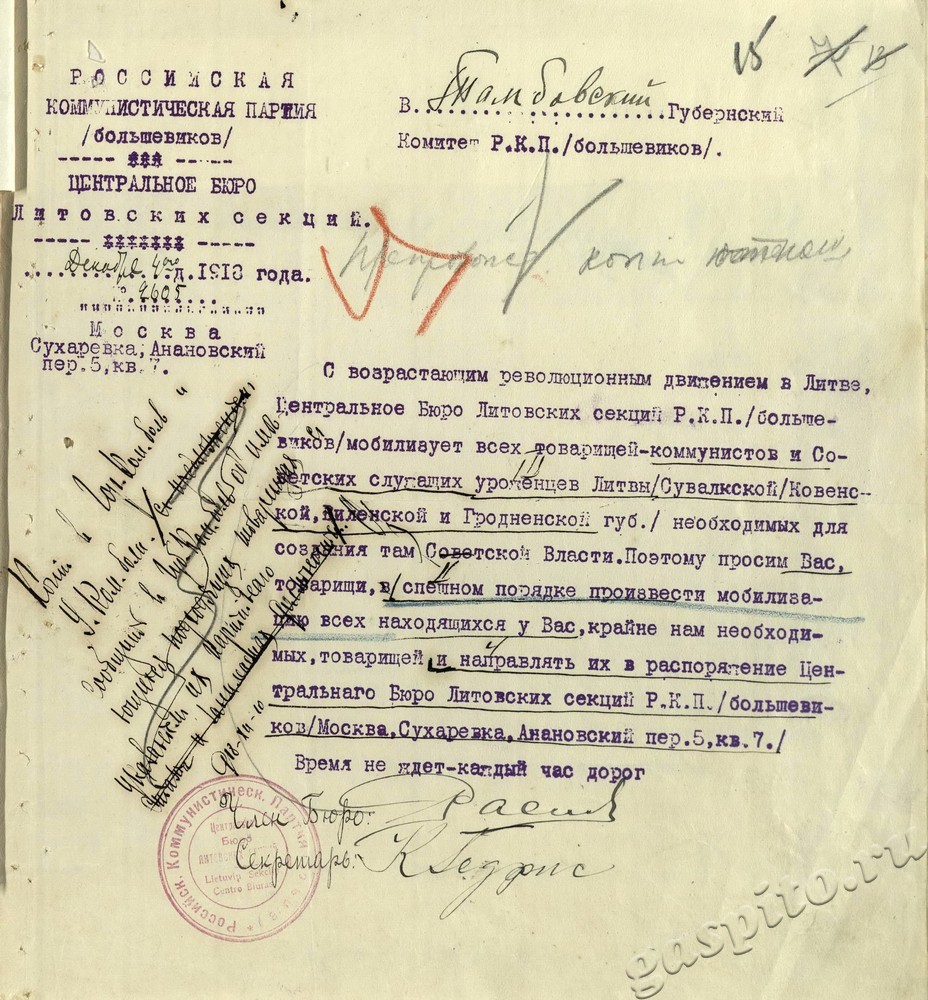 РОССИЙСКАЯ
КОММУНИСТИЧЕСКАЯ ПАРТИЯ
/большевиков/
ЦЕНТРАЛЬНОЕ БЮРО
Литовских секций.
Декабря 4го д. 1918 года.
2605
Москва
Сухаревка, Анановский
пер. 5, кв. 7.
15
В Тамбовский Губернский
Комитет Р.К.П./большевиков/.
копи
С возрастающим революционным движением в Литве,
Центральное Бюро Литовских секций Р.К.П./больше-
виков/мобилизует всех товарищей-коммунистов и Со-
ветских служащих уроженцев Литвы/Сувалкской/Ковенс-
кой, Виленской и Гродненской губ./ необходимых для
создания там Советской Власти. Поэтому просим Вас,
товарищи, в спешном порядке произвести мобилиза-
цию всех находящихся у Вас, крайне нам необходи-
мых, товарищей и направлять их в распоряжение Цен-
тральнаго Бюро Литовских секций Р.К.П./большеви-
ков/Москва, Сухаревка, Анановский пер. 5, кв. 7./
Время не ждет-каждый час дорог
Член Бюро:
Секретарь: К Гедрис
Копи в Гор. Ком. боль
У. Ком. бол.
сообщить в
товарищах
партийного
Российск. Коммунистическ. Партии
Бюро
Lietuvip Sekcijų
Centro Biuras
gaspito.ru